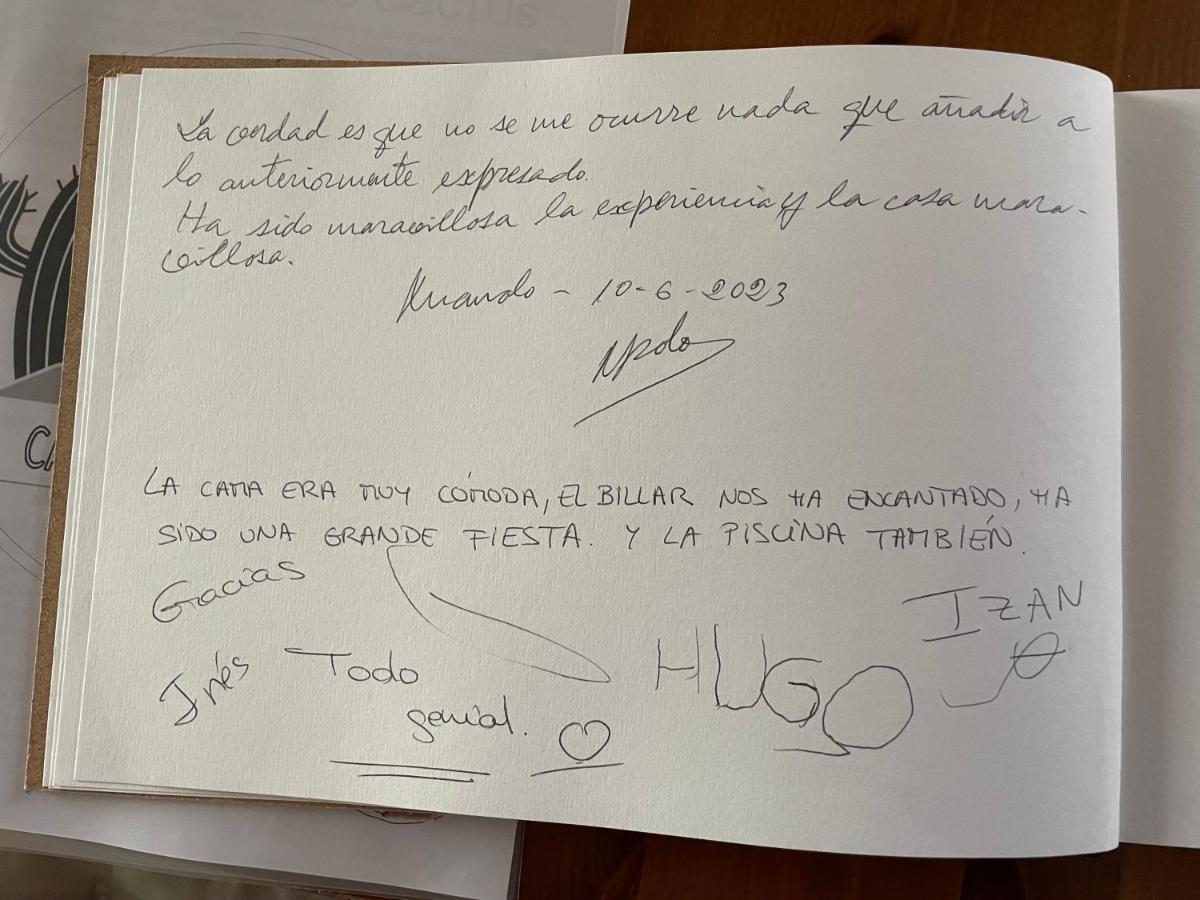 CACTUS
La verdad es que no se me ocurre nada que añadir a
lo anteriormente expresado.
Ha sido maravillosa la experiencia y la casa mara-
villosa.
10-6-2023
LA CAMA ERA MUY CÓMODA, EL BILLAR NOS HA ENCANTADO, HA
SIDO UNA GRANDE FIESTA. Y LA PISCINA TAMBIÉN.
Gracias
IZAN
HUGO
Inés
Todo
genial.
CA